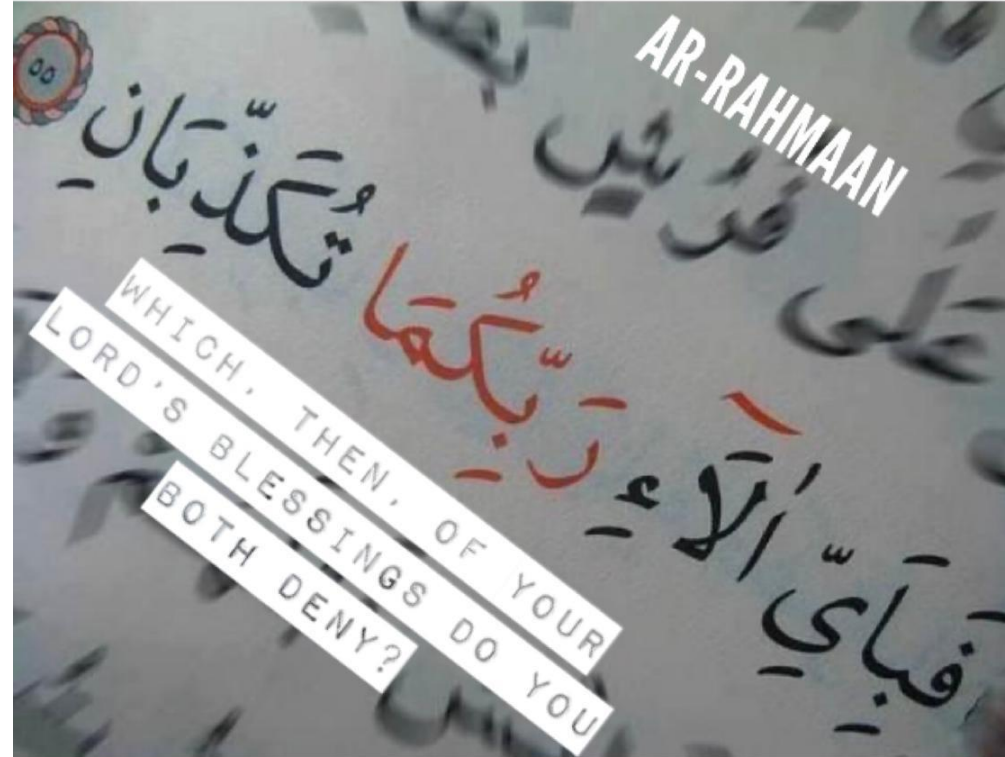 AR-RAHMAAN
عَلَى فُرُشٍ
فَبِاَيِّ اٰلَآءِ رَبِّكُمَا تُكَذِّبَانِ ٥٥
WHICH, THEN, OF YOUR
LORD'S BLESSINGS DO YOU
BOTH DENY?